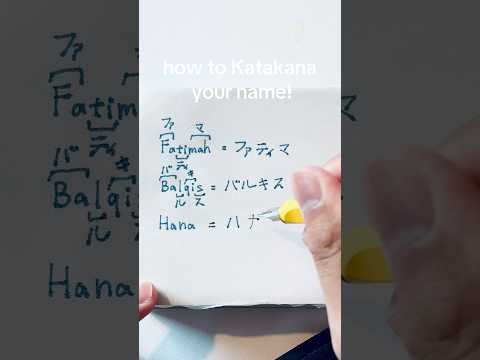 how to Katakana
your name!
ファ マ
Fatimah = ファティマ
ティ
バ キ
Balqis = バルキス
ル ス
Hana = ハナ